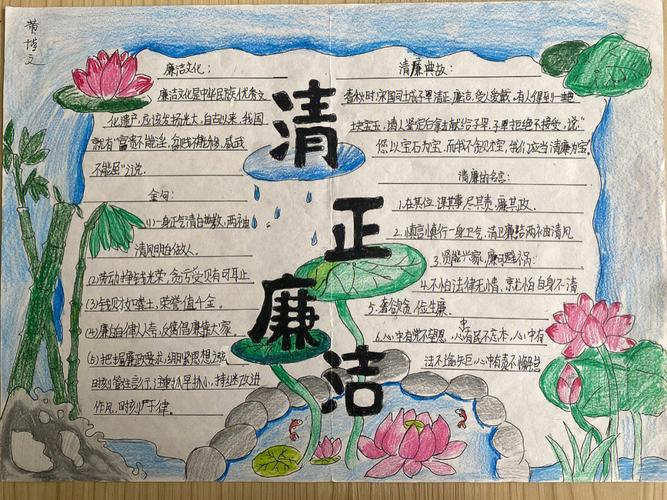 清正廉洁
廉洁文化：
廉洁文化是中华民族优秀文
化遗产，应该发扬光大，自古以来，我国
就有“富贵不能淫，贫贱不能移，威武
不能屈”之说。
金句：
(1)一身正气清白做人，两袖
清风明白做人。
(2)劳动挣钱光荣，贪污受贿可耻
(3)钱财如粪土，荣誉值千金。
(4)廉洁自律人人夸，反腐倡廉靠大家
(5)把握廉政要求，绷紧思想之弦
时刻管住言行，注重抓早抓小，持续改进
作风，时刻严于律。
清廉典故：
春秋时，宋国司城子罕清正廉洁，受人爱戴。有人得到一
块宝玉，请人鉴定后拿去献给子罕，子罕拒绝不接受，说：“
您以宝石为宝，而我不贪为宝，我们应当清廉为宝。
清廉的名言：
1.在其位，谋其事，尽其责，廉其政。
2.慎言慎行一身正气，清正廉洁两袖清风
3.贤能兴家，廉可避祸：
4.不怕法律无情，就怕自身不清
5.奢欲念，位生廉
6.心中有党不望恩，心中有民不忘本，心中有
法不逾矩，心中有责不懈怠